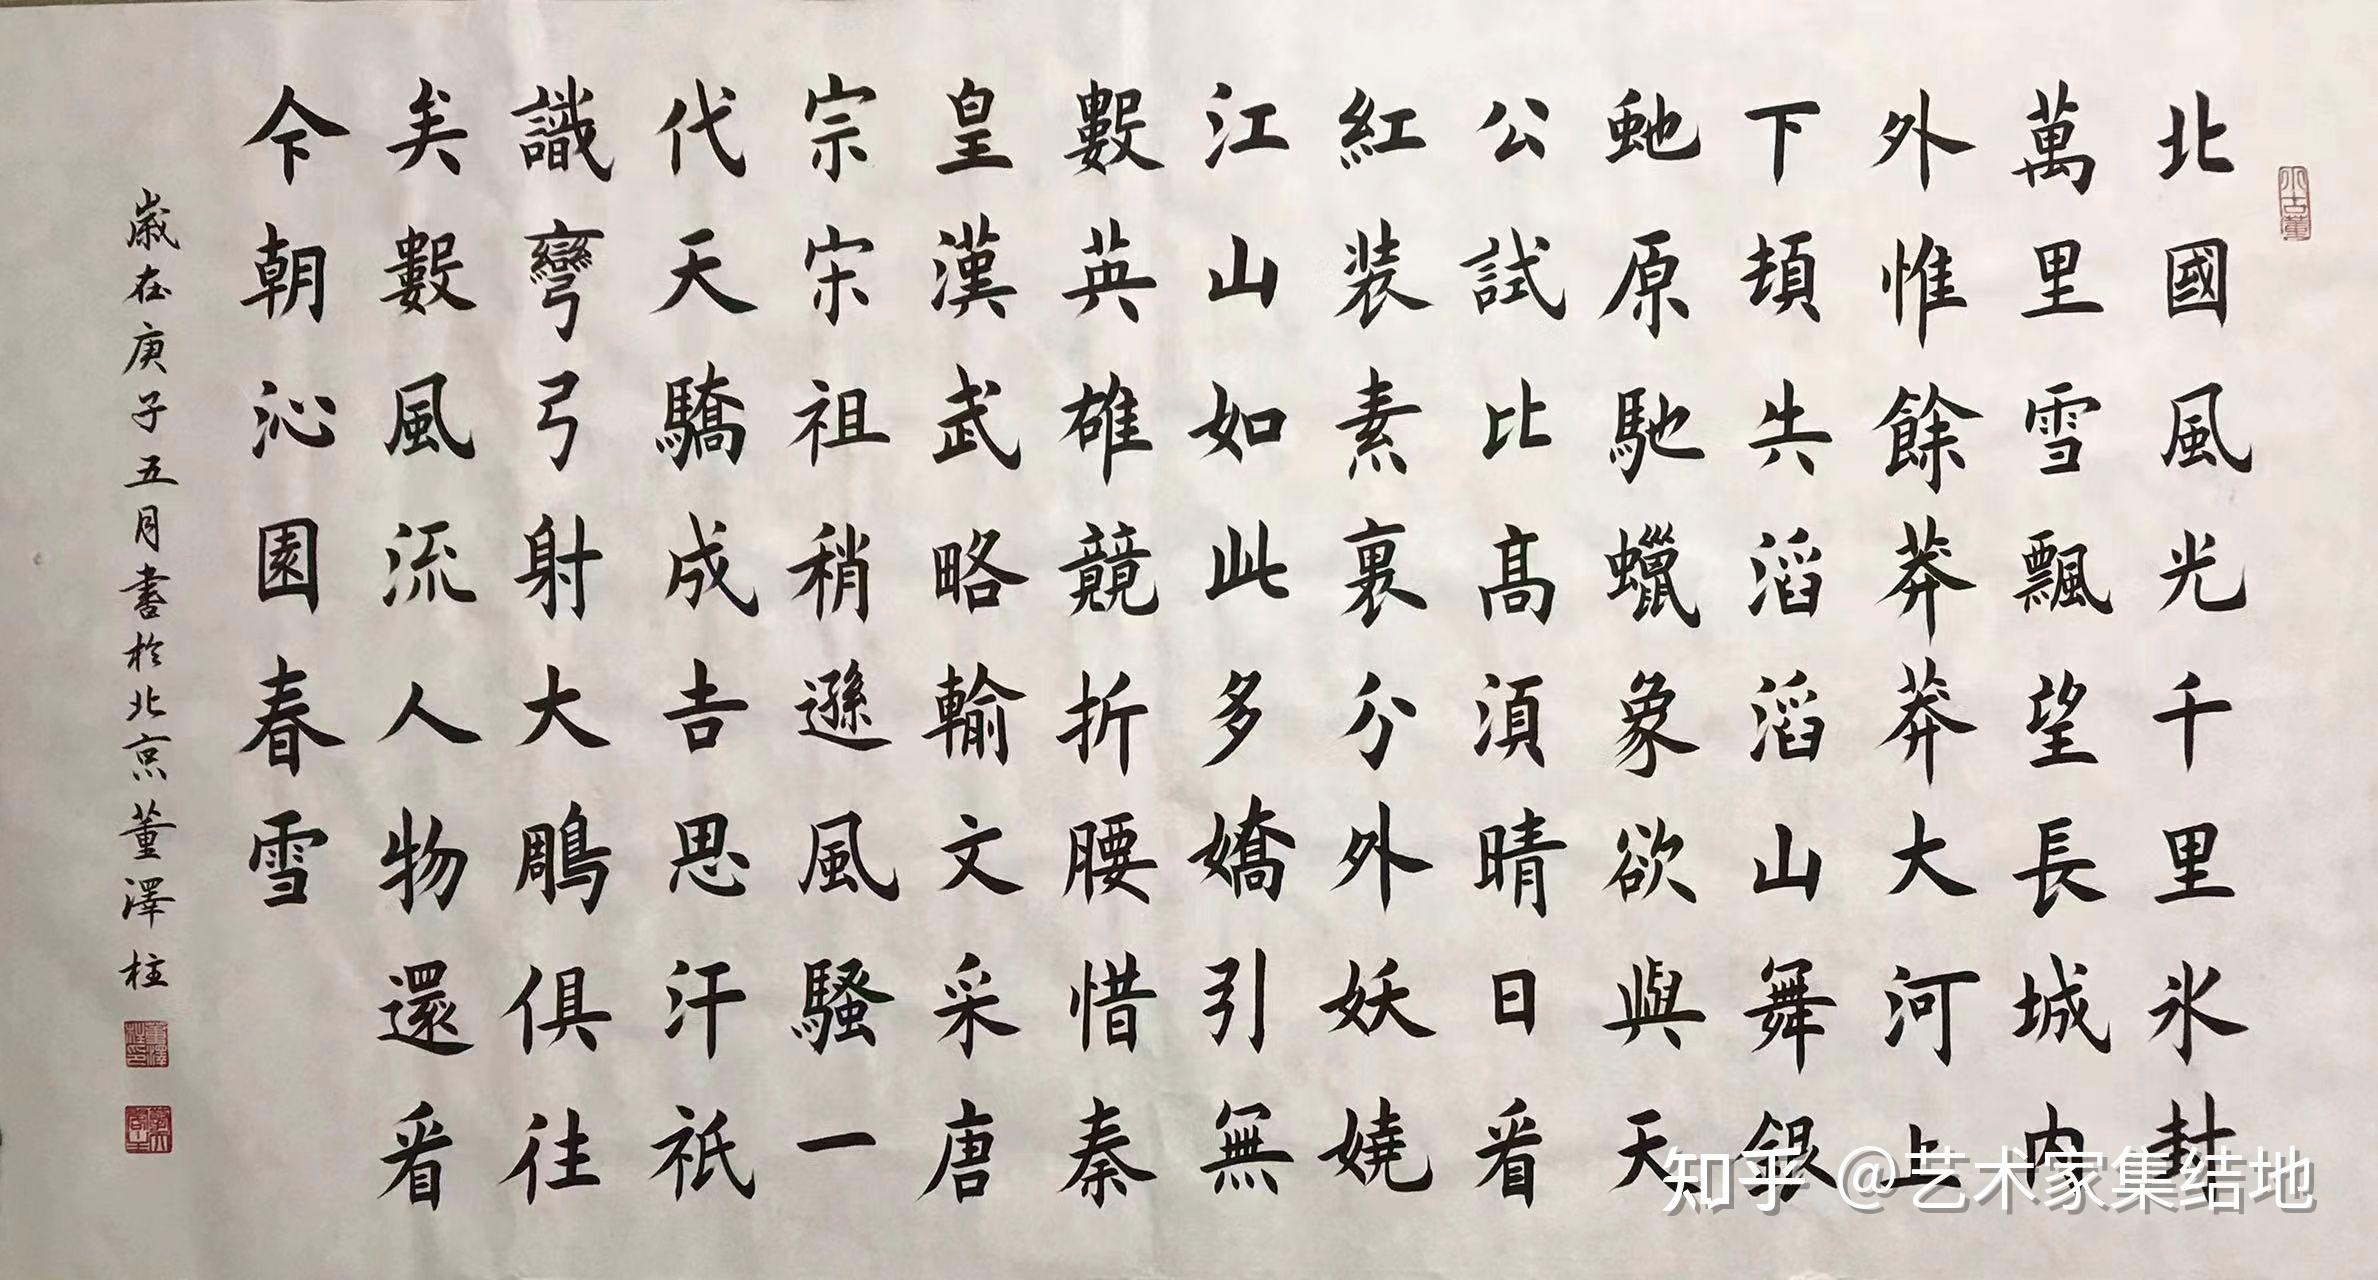 北國風光千里氷封
萬里雪飄望長城内
外惟餘莽莽大河上
下頓失滔滔山舞銀
虵原馳蠟象欲與天
公試比髙湏晴日看
紅装素裹分外妖嬈
江山如此多嬌引無
數英雄競折腰惜秦
皇漢武略輸文采唐
宗宋祖稍遜風騷一
代天驕成吉思汗祇
識彎弓射大鵰俱往
矣數風流人物還看
今朝沁園春雪
歲在庚子五月書於北京董澤柱
董澤柱印
知乎 @艺术家集结地